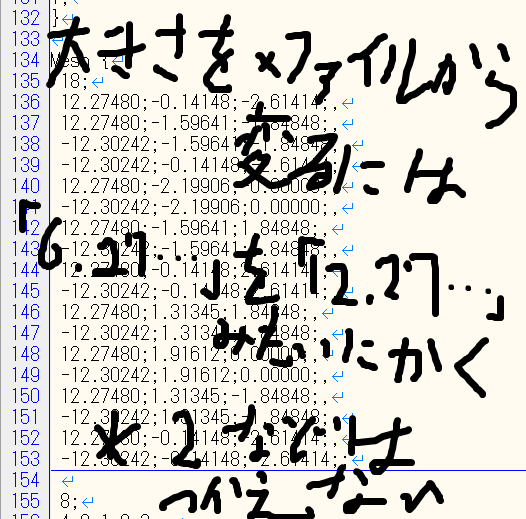 132 }
133
大きさをxファイルから
134 Mesh {
135 18;
136 12.27480;-0.14148;-2.61414;,
137 12.27480;-1.59641;-1.84848;,
138 -12.30242;-1.59641;-1.84848;,
変るには
139 -12.30242;-0.14148;-2.61414;,
140 12.27480;-2.19906;0.00000;,
141 -12.30242;-2.19906;0.00000;,
142 12.27480;-1.59641;1.84848;,
「6.27…」を「12.27…」
143 -12.30242;-1.59641;1.84848;,
144 12.27480;-0.14148;2.61414;,
145 -12.30242;-0.14148;2.61414;,
146 12.27480;1.31345;1.84848;,
みたいにかく
147 -12.30242;1.31345;1.84848;,
148 12.27480;1.91612;0.00000;,
149 -12.30242;1.91612;0.00000;,
150 12.27480;1.31345;-1.84848;,
151 -12.30242;1.31345;-1.84848;,
* 2などは
152 12.27480;-0.14148;-2.61414;,
153 -12.30242;-0.14148;-2.61414;,
154
つかえない
155 8;